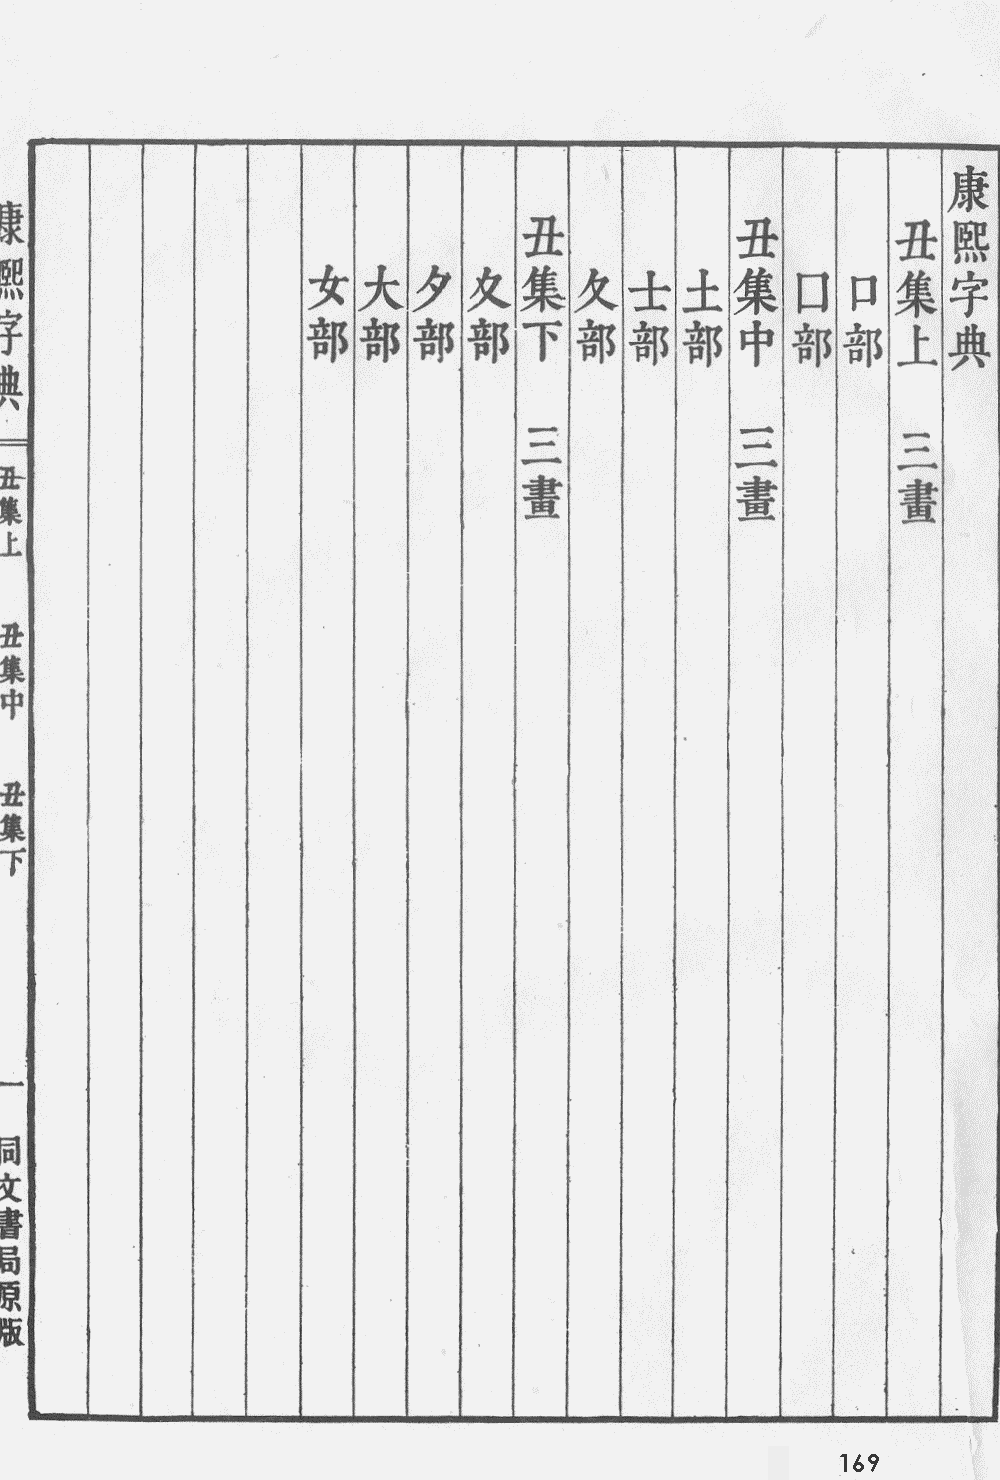 康熙字典
丑集上 三畫
口部
囗部
丑集中 三畫
土部
士部
夂部
丑集下 三畫
夊部
夕部
大部
女部
康熙字典 丑集上 丑集中 丑集下 一 同文書局原版
169